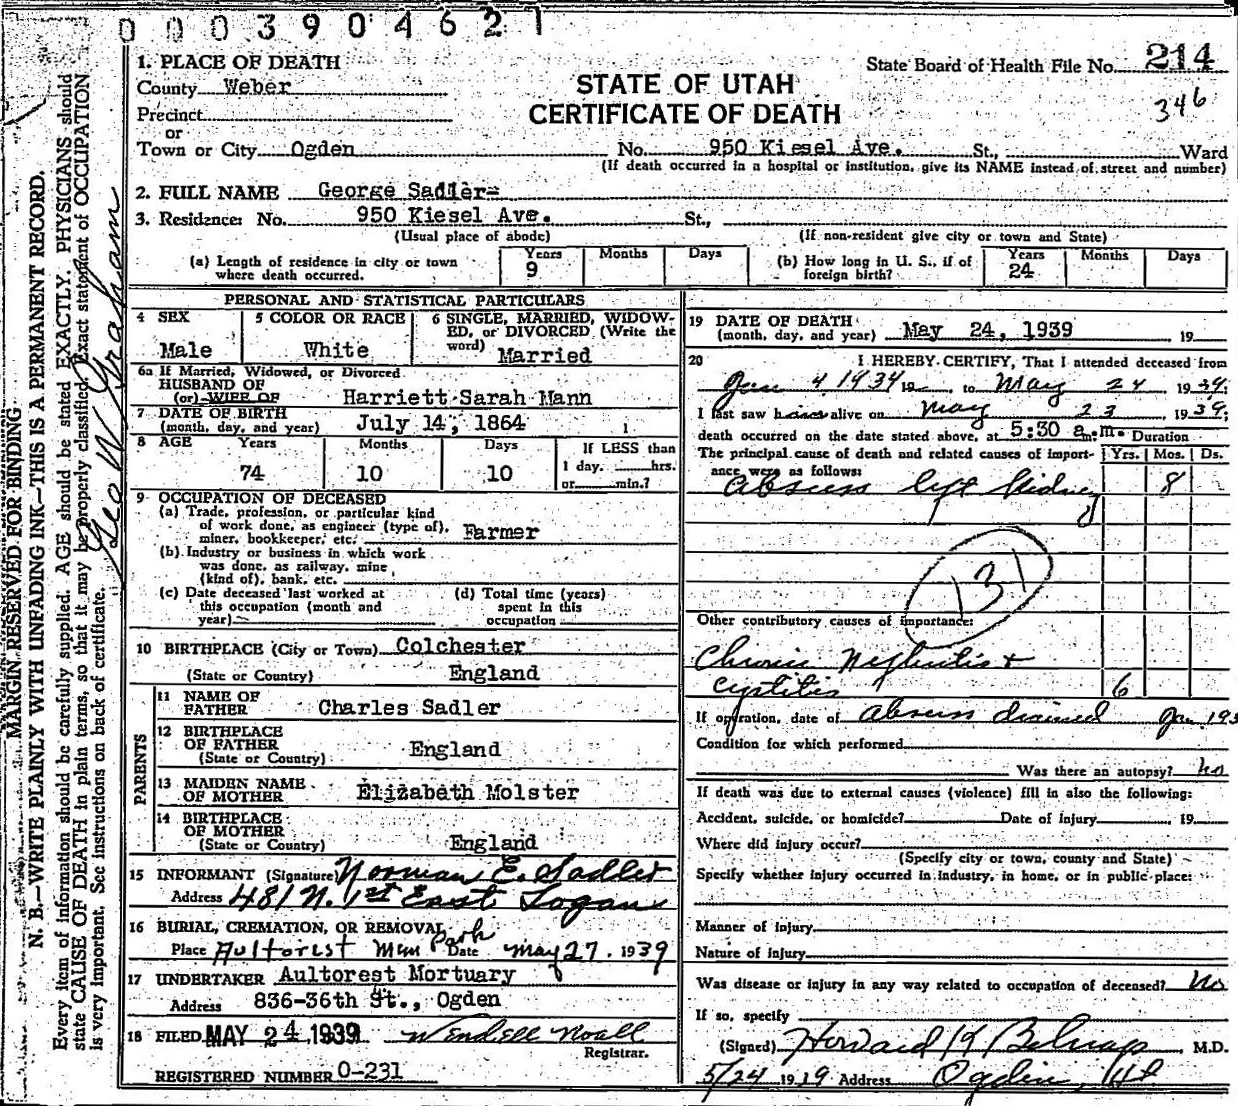 0 0 0 3 9 0 4 6 2 1
1. PLACE OF DEATH
County Weber
Precinct
or
Town or City Ogden No. 950 Kiesel Ave. St., Ward
(If death occurred in a hospital or institution, give its NAME instead of street and number)
STATE OF UTAH
CERTIFICATE OF DEATH
State Board of Health File No. 214
346
2. FULL NAME George Sadler
3. Residence: No. 950 Kiesel Ave. St.,
(Usual place of abode) (If non-resident give city or town and State)
(a) Length of residence in city or town where death occurred. Years 9 Months Days
(b) How long in U. S., if of foreign birth? Years 24 Months Days
PERSONAL AND STATISTICAL PARTICULARS
4 SEX Male
5 COLOR OR RACE White
6 SINGLE, MARRIED, WIDOWED, or DIVORCED (Write the word) Married
6a If Married, Widowed, or Divorced
HUSBAND OF
(or) WIFE OF Harriett Sarah Mann
7 DATE OF BIRTH
(month, day, and year) July 14, 1864
8 AGE Years 74 Months 10 Days 10
If LESS than
1 day. hrs.
or min.?
9 OCCUPATION OF DECEASED
(a) Trade, profession, or particular kind
of work done, as engineer (type of),
miner, bookkeeper, etc. Farmer
(b) Industry or business in which work
was done, as railway, mine
(kind of), bank, etc.
(c) Date deceased last worked at
this occupation (month and
year)
(d) Total time (years)
spent in this
occupation
10 BIRTHPLACE (City or Town) Colchester
(State or Country) England
PARENTS
11 NAME OF
FATHER Charles Sadler
12 BIRTHPLACE
OF FATHER England
(State or Country)
13 MAIDEN NAME
OF MOTHER Elizabeth Molster
14 BIRTHPLACE
OF MOTHER
(State or Country) England
15 INFORMANT (Signature) Norman E. Sadler
Address 481 N. 1st East Logan
16 BURIAL, CREMATION, OR REMOVAL
Place Aultorest Mem Park Date May 27. 1939
17 UNDERTAKER Aultorest Mortuary
Address 836-36th St., Ogden
18 FILED MAY 24 1939 Wendell Noall
Registrar.
REGISTERED NUMBER 0-231
19 DATE OF DEATH
(month, day, and year) May 24, 1939 19
20 I HEREBY CERTIFY, That I attended deceased from
Jan 4 1934 19 to May 24 1939.
I last saw him alive on May 23 1939;
death occurred on the date stated above, at 5:30 a.m. Duration
The principal cause of death and related causes of importance were as follows: Yrs. Mos. Ds.
Abscess left Kidney 8
131
Other contributory causes of importance:
Chronic Nephritis +
Cystitis 6
If operation, date of Abscess drained Jan 193
Condition for which performed
Was there an autopsy? no
If death was due to external causes (violence) fill in also the following:
Accident, suicide, or homicide? Date of injury 19
Where did injury occur?
(Specify city or town, county and State)
Specify whether injury occurred in industry, in home, or in public place:
Manner of injury
Nature of injury
Was disease or injury in any way related to occupation of deceased? No
If so, specify
(Signed) Howard K Belnap, M.D.
5/24 1939 Address Ogden, Ut
MARGIN RESERVED FOR BINDING
N. B.—WRITE PLAINLY WITH UNFADING INK—THIS IS A PERMANENT RECORD.
Every item of information should be carefully supplied. AGE should be stated EXACTLY. PHYSICIANS should
state CAUSE OF DEATH in plain terms, so that it may be properly classified. Exact statement of OCCUPATION
is very important. See instructions on back of certificate.
Geo W Graham